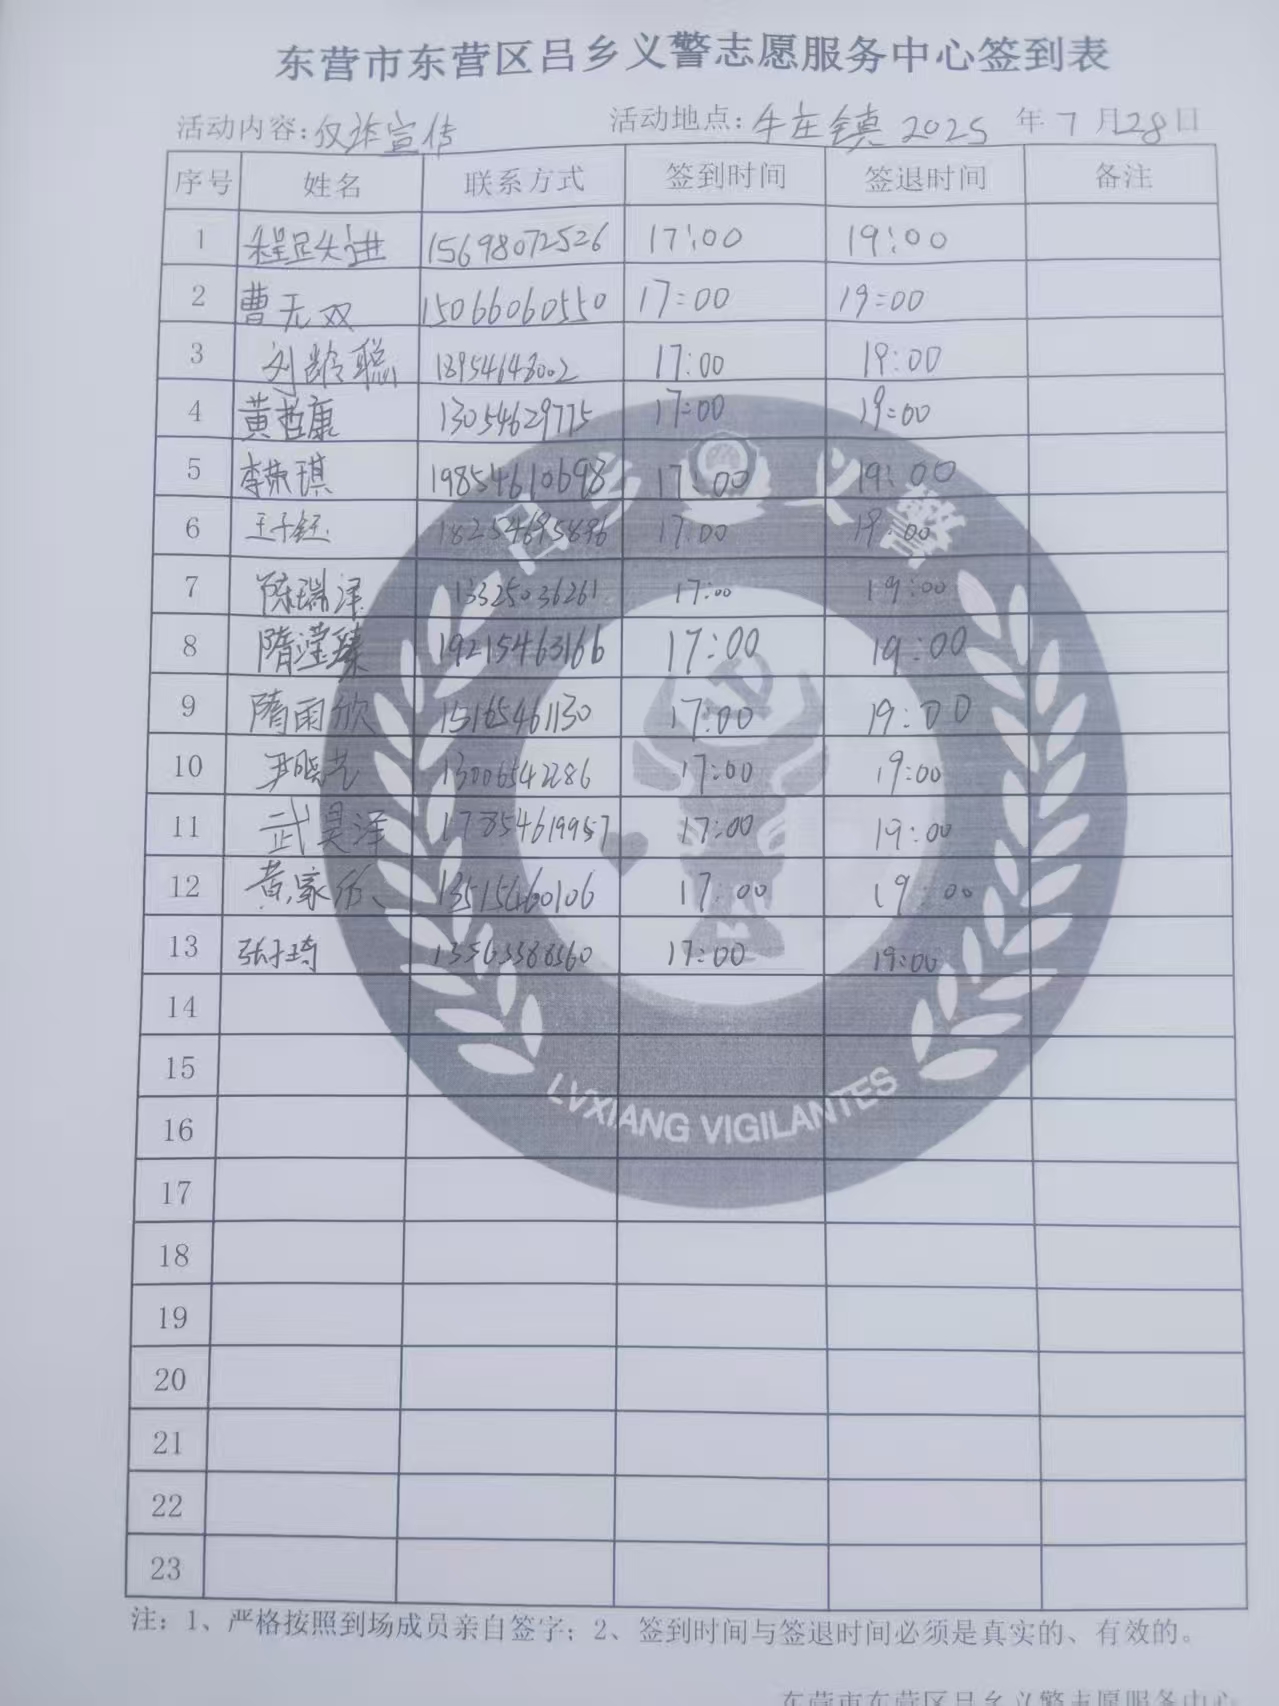 东营市东营区吕乡义警志愿服务中心签到表
活动内容:反诈宣传 活动地点:牛庄镇 2025 年 7 月 28 日
序号 姓名 联系方式 签到时间 签退时间 备注
1 15698072526 17:00 19:00
2 曹无双 15066060550 17:00 19:00
3 刘龄聪 18954648002 17:00 19:00
4 黄哲康 13054629775 17:00 19:00
5 李荣琪 19854610698 17:00 19:00
6 王子钰 18254695896 17:00 19:00
7 陈瑞泽 13325036261 17:00 19:00
8 隋滢臻 19215463166 17:00 19:00
9 隋雨欣 15165461130 17:00 19:00
10 尹晓艺 13006542286 17:00 19:00
11 武昊泽 17854619957 17:00 19:00
12 黄家 13515460106 17:00 19:00
13 张子琦 13563388360 17:00 19:00
14
15
16
17
18
19
20
21
22
23
吕乡义警
LVXIANG VIGILANTES
注：1、严格按照到场成员亲自签字；2、签到时间与签退时间必须是真实的、有效的。
东营市东营区吕乡义警志愿服务中心